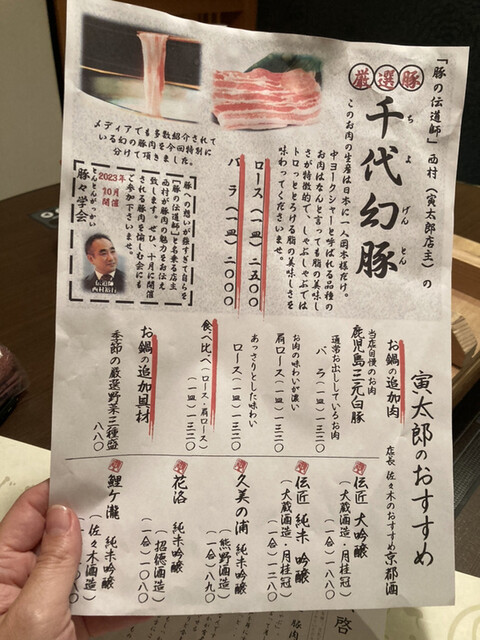 「豚の伝道師」西村（寅太郎店主）の
厳選豚
千代幻豚
ちよげんとん
このお肉の生産は日本に一人岡本様だけ。
中ヨークシャーと呼ばれる品種の
お肉はなんと言っても脂の美味し
さが特徴的で、しゃぶしゃぶでは
トロっととろける脂の美味しさを
味わってくださいませ。
ロース（一皿）二五〇〇
バラ（一皿）二〇〇〇
メディアでも多数紹介されて
いる幻の豚肉を今回特別に
分けて頂きました。
豚への想いが強すぎて自らを
「豚の伝道師」と名乗る店主
西村が豚肉の魅力をお伝え
致します。ぜひ、十月に開催
される豚肉を愉しむ会にも
ご参加下さいませ。
2023年
10月開催
豚々学会
とんとんがっかい
伝道師
西村裕行
寅太郎のおすすめ
お鍋の追加肉
当店自慢のお肉
鹿児島三元白豚
通常お出ししているお肉
バラ（一皿）一三二〇
お肉の味わいが濃い
肩ロース（一皿）一三二〇
あっさりとした味わい
ロース（一皿）一三二〇
食べ比べ（ロース・肩ロース）
（一皿）一三二〇
お鍋の追加具材
季節の厳選野菜三種盛
八八〇
店長 佐々木のおすすめ京都酒
伝匠 大吟醸
（大蔵酒造・月桂冠）
（一合）一八八〇
伝匠 純米 吟醸
（大蔵酒造・月桂冠）
（一合）一二八〇
久美の浦 純米吟醸
（熊野酒造）
（一合）八九〇
花洛 純米吟醸
（招德酒造）
（一合）一〇八〇
鯉ケ瀧 純米吟醸
（佐々木酒造）